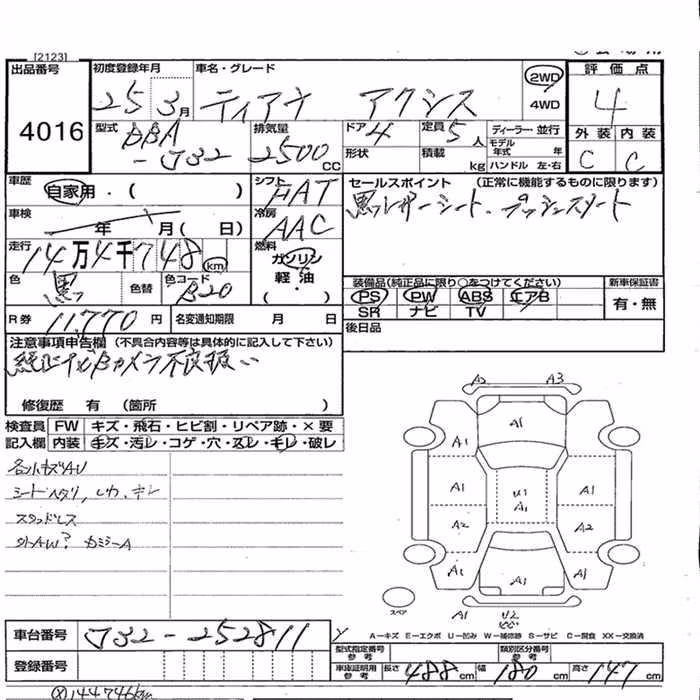 [2123]
出品番号 初度登録年月 車名・グレード 2WD 評価点
4016 25 3月 ティアナ アクシス 4WD 4
型式 DBA -J32 排気量 2500 CC ドア 4 定員 5人 ディーラー 並行 外装 内装
形状 積載 kg モデル年式 年 ハンドル 左・右 C C
車歴 自家用・( ) シフト FAT セールスポイント (正常に機能するものに限ります)
車検 年 月( 日) 冷房 AAC 黒レザーシート、プッシュスタート
走行 14万4千748 km 燃料 ガソリン 軽油 ( ・ )
色 黒 色替 色コード B20 装備品(純正品に限り○をつけてください) 新車保証書
PS PW ABS エアB 有・無
SR ナビ TV
R券 11,770円 名変通知期限 月 日 後日品
注意事項申告欄 (不具合内容等は具体的に記入して下さい)
純正ナビBカメラ不良扱い
修復歴 有 (箇所 )
検査員 FW キズ・飛石・ヒビ割・リペア跡・×要
記入欄 内装 キズ・汚レ・コゲ・穴・スレ・キレ・破レ
A2 A3
A1
A1 A1
A1 U1 A1 A1
A2 A2
A1 A1 A1
スペア
A1 U2
シートヘタリ、シワ、キレ
スタッドレス
車台番号 J32-252811
登録番号
A-キズ E-エクボ U-凹み W-補修跡 S-サビ C-腐食 XX-交換済
型式指定番号 参考 類別区分番号 参考
車庫証明用 参考 長さ 488cm 幅 180cm 高さ 147cm
144746km